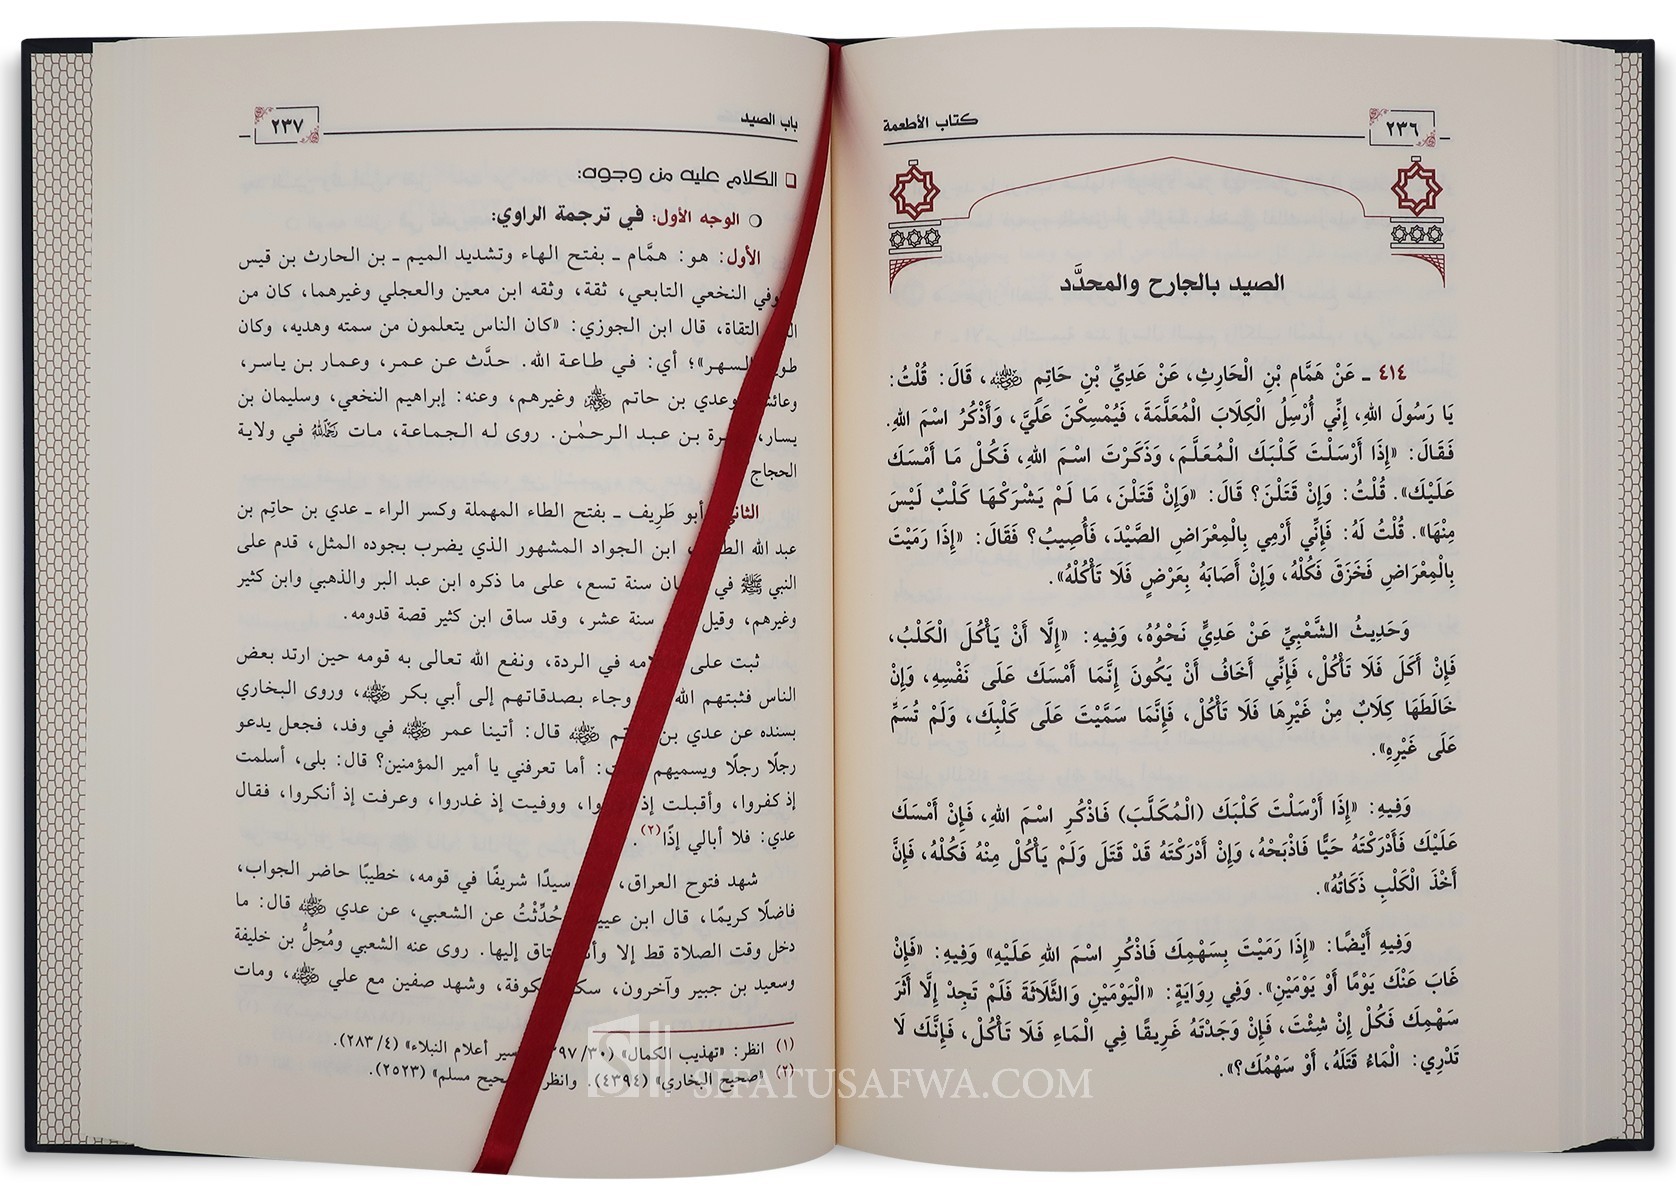 كتاب الأطعمة
٢٣٦
الصيد بالجارح والمحدَّد
٤١٤ ـ عَنْ هَمَّامِ بْنِ الْحَارِثِ، عَنْ عَدِيِّ بْنِ حَاتِمٍ ﵁، قَالَ: قُلْتُ:
يَا رَسُولَ اللهِ، إِنِّي أُرْسِلُ الْكِلَابَ الْمُعَلَّمَةَ، فَيُمْسِكْنَ عَلَيَّ، وَأَذْكُرُ اسْمَ اللهِ.
فَقَالَ: «إِذَا أَرْسَلْتَ كَلْبَكَ الْمُعَلَّمَ، وَذَكَرْتَ اسْمَ اللهِ، فَكُلْ مَا أَمْسَكَ
عَلَيْكَ». قُلْتُ: وَإِنْ قَتَلْنَ؟ قَالَ: «وَإِنْ قَتَلْنَ، مَا لَمْ يَشْرَكْهَا كَلْبٌ لَيْسَ
مِنْهَا». قُلْتُ لَهُ: فَإِنِّي أَرْمِي بِالْمِعْرَاضِ الصَّيْدَ، فَأُصِيبُ؟ فَقَالَ: «إِذَا رَمَيْتَ
بِالْمِعْرَاضِ فَخَزَقَ فَكُلْهُ، وَإِنْ أَصَابَهُ بِعَرْضٍ فَلَا تَأْكُلْهُ».
وَحَدِيثُ الشَّعْبِيِّ عَنْ عَدِيٍّ نَحْوُهُ، وَفِيهِ: «إِلَّا أَنْ يَأْكُلَ الْكَلْبُ،
فَإِنْ أَكَلَ فَلَا تَأْكُلْ، فَإِنِّي أَخَافُ أَنْ يَكُونَ إِنَّمَا أَمْسَكَ عَلَى نَفْسِهِ، وَإِنْ
خَالَطَهَا كِلَابٌ مِنْ غَيْرِهَا فَلَا تَأْكُلْ، فَإِنَّمَا سَمَّيْتَ عَلَى كَلْبِكَ، وَلَمْ تُسَمِّ
عَلَى غَيْرِهِ».
وَفِيهِ: «إِذَا أَرْسَلْتَ كَلْبَكَ (الْمُكَلَّبَ) فَاذْكُرِ اسْمَ اللهِ، فَإِنْ أَمْسَكَ
عَلَيْكَ فَأَدْرَكْتَهُ حَيًّا فَاذْبَحْهُ، وَإِنْ أَدْرَكْتَهُ قَدْ قَتَلَ وَلَمْ يَأْكُلْ مِنْهُ فَكُلْهُ، فَإِنَّ
أَخْذَ الْكَلْبِ ذَكَاتُهُ».
وَفِيهِ أَيْضًا: «إِذَا رَمَيْتَ بِسَهْمِكَ فَاذْكُرِ اسْمَ اللهِ عَلَيْهِ» وَفِيهِ: «فَإِنْ
غَابَ عَنْكَ يَوْمًا أَوْ يَوْمَيْنِ». وَفِي رِوَايَةٍ: «الْيَوْمَيْنِ وَالثَّلَاثَةَ فَلَمْ تَجِدْ إِلَّا أَثَرَ
سَهْمِكَ فَكُلْ إِنْ شِئْتَ، فَإِنْ وَجَدْتَهُ غَرِيقًا فِي الْمَاءِ فَلَا تَأْكُلْ، فَإِنَّكَ لَا
تَدْرِي: الْمَاءُ قَتَلَهُ، أَوْ سَهْمُكَ؟».
باب الصيد
٢٣٧
الكلام عليه من وجوه:
الوجه الأول: في ترجمة الراوي:
الأول: هو: همَّام ـ بفتح الهاء وتشديد الميم ـ بن الحارث بن قيس
النخعي التابعي، ثقة، وثقه ابن معين والعجلي وغيرهما، كان من
التقاة، قال ابن الجوزي: «كان الناس يتعلمون من سمته وهديه، وكان
السهر»؛ أي: في طاعة الله. حدَّث عن عمر، وعمار بن ياسر،
وعدي بن حاتم ﵃ وغيرهم، وعنه: إبراهيم النخعي، وسليمان بن
يسار، بن عبد الرحمٰن. روى له الجماعة، مات ﵀ في ولاية
الحجاج
أبو طَرِيف ـ بفتح الطاء المهملة وكسر الراء ـ عدي بن حاتِم بن
عبد الله ابن الجواد المشهور الذي يضرب بجوده المثل، قدم على
النبي ﷺ في سنة تسع، على ما ذكره ابن عبد البر والذهبي وابن كثير
وغيرهم، وقيل سنة عشر، وقد ساق ابن كثير قصة قدومه.
ثبت على في الردة، ونفع الله تعالى به قومه حين ارتد بعض
الناس فثبتهم الله وجاء بصدقاتهم إلى أبي بكر ﵁، وروى البخاري
بسنده عن عدي بن ﵁ قال: أتينا عمر ﵁ في وفد، فجعل يدعو
رجلًا رجلًا ويسميهم أما تعرفني يا أمير المؤمنين؟ قال: بلى، أسلمت
إذ كفروا، وأقبلت إذ ووفيت إذ غدروا، وعرفت إذ أنكروا، فقال
عدي: فلا أبالي إذًا(٢).
شهد فتوح العراق، سيدًا شريفًا في قومه، خطيبًا حاضر الجواب،
فاضلًا كريمًا، قال ابن حُدِّثْتُ عن الشعبي، عن عدي ﵁ قال: ما
دخل وقت الصلاة قط إلا إليها. روى عنه الشعبي ومُحِلُّ بن خليفة
وسعيد بن جبير وآخرون، وشهد صفين مع علي ﵁، ومات
(١) انظر: «تهذيب الكمال» (٣٠/ ٣٩٧ سير أعلام النبلاء» (٤/ ٢٨٣).
(٢) «صحيح البخاري» (٤٣٩٤). وانظر صحيح مسلم» (٢٥٢٣).
SIFATUSAFWA.COM